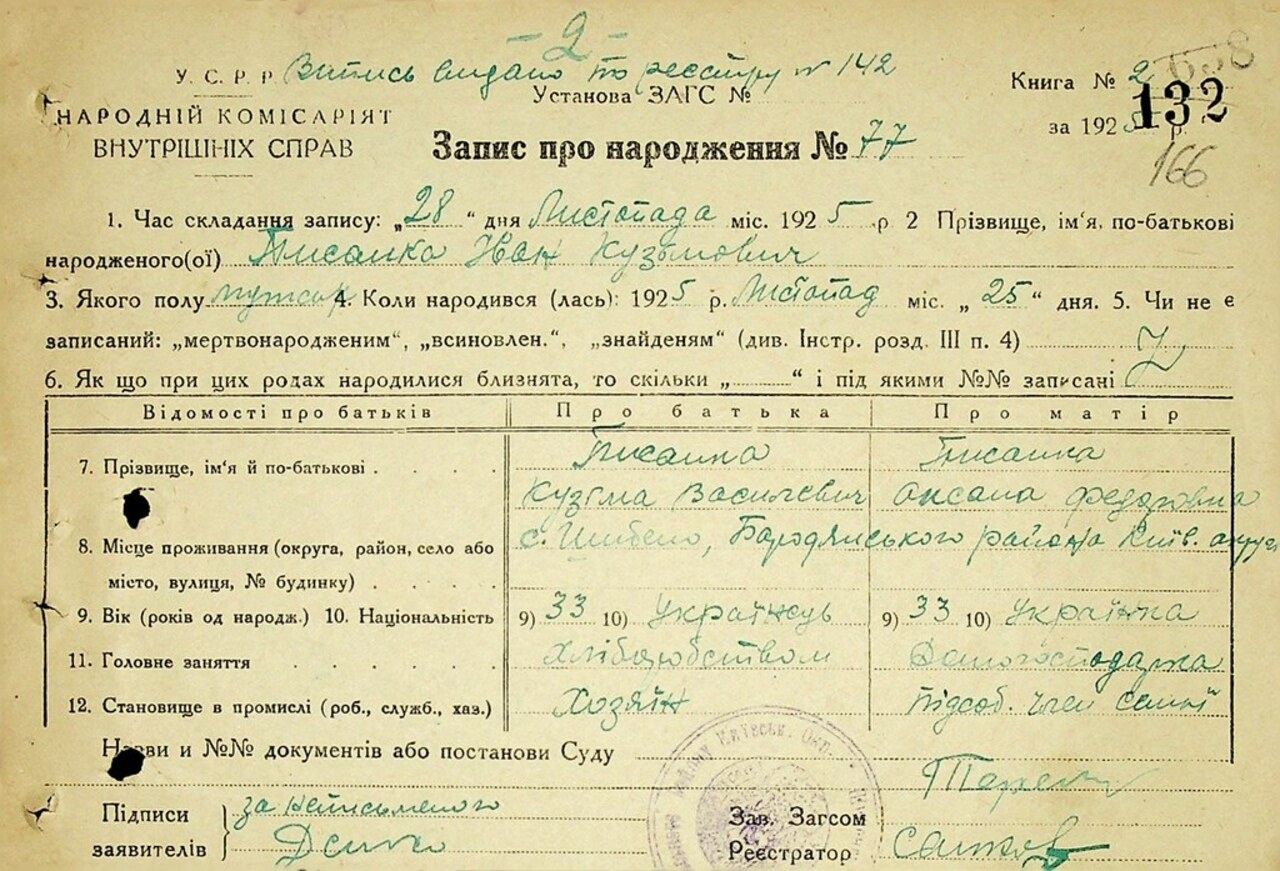 – 2 –
У. С. Р. Р. Випись видано по реєстру № 142
Установа ЗАГС №
Книга № 2
658
132
НАРОДНІЙ КОМІСАРІЯТ
ВНУТРІШНІХ СПРАВ
Запис про народження № 77
за 1925 р.
166
1. Час складання запису: „28“ дня Листопада міс. 1925 .р 2 Прізвище, ім'я, по-батькові
народженого(ої) Писанко Іван Кузьмович
3. Якого полу 4. Коли народився (лась): 1925 р. Листопад міс. „25“ дня. 5. Чи не є
записаний: „мертвонародженим“, „всиновлен.“, „знайденям“ (див. Інстр. розд. III п. 4)
6. Як що при цих родах народилися близнята, то скільки „ “ і під якими №№ записані
Відомості про батьків Про батька Про матір
7. Прізвище, ім'я й по-батькові Писанко Писанка
Кузьма Василевич Оксана Федоровна
8. Місце проживання (округа, район, село або с. Бородянського району Київ.
місто, вулиця, № будинку)
9. Вік (років од народж.) 10. Національність 9) 33 10) Українець 9) 33 10) Українка
11. Головне заняття Хліборобством Домогосподарка
12. Становище в промислі (роб., служб., хаз.) Хозяїн підсоб. член сем'ї
Назви и №№ документів або постанови Суду
Підписи за неписьменого
заявителів
Зав. Загсом
Реєстратор